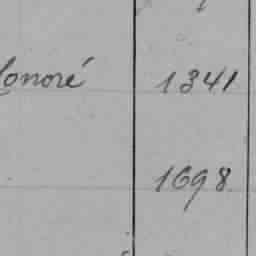 Honoré 1341
1698